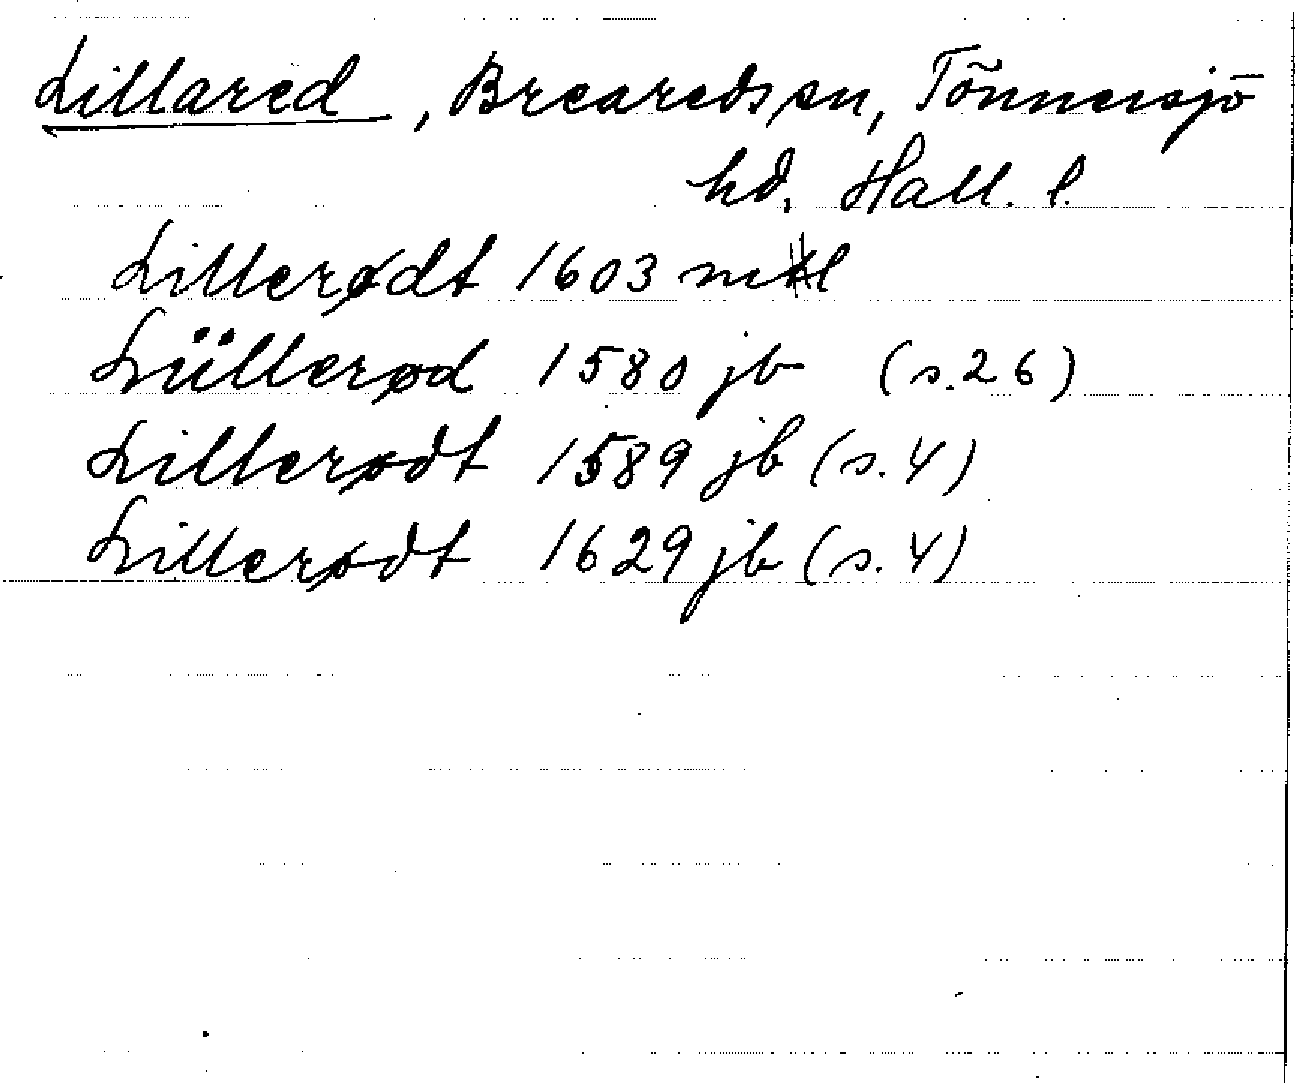 Lillared, Breareds sn, Tönnersjö
hd, Hall. l.
Lillerødt 1603 mtl
Lüllerød 1580 jb (s. 26)
Lillerødt 1589 jb (s. 4)
Lillerødt 1629 jb (s. 4)